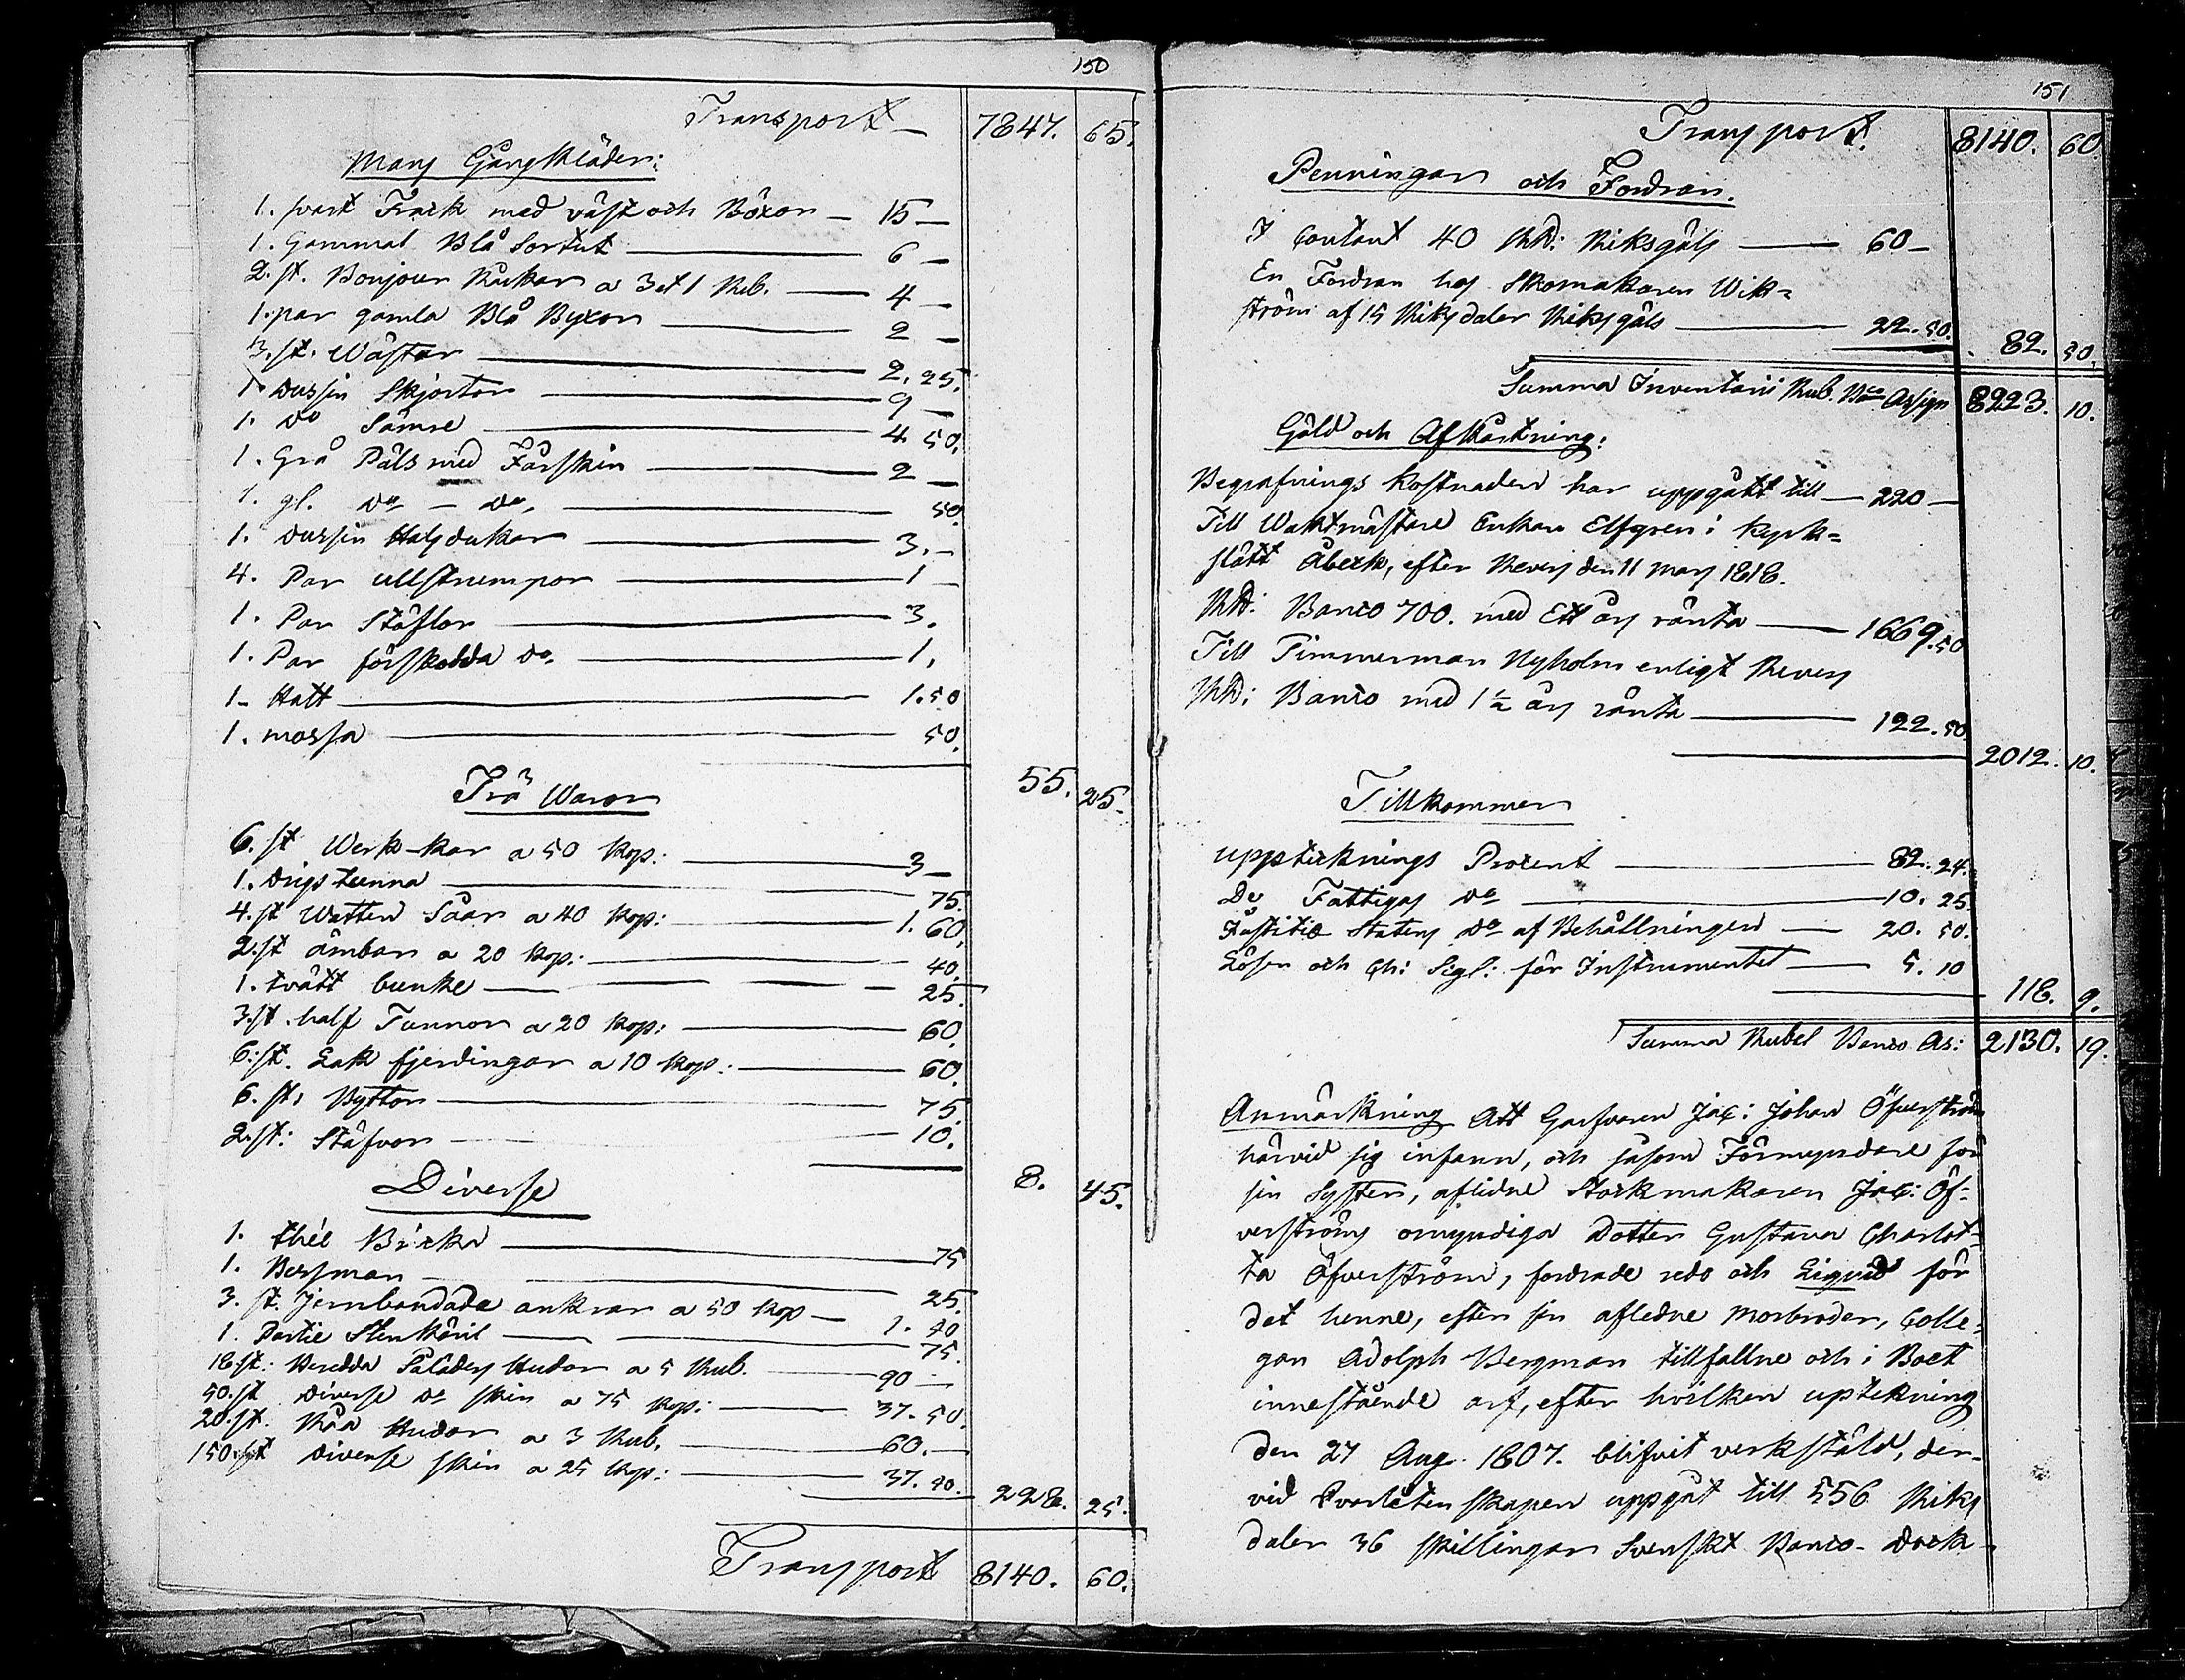 150
Transport — 7847. 65.
Mans Gångkläder:
1. svart Frack med väst och Böxor — 15 —
1. Gammal Blå Sortut — 6 —
2. st. Bonjour Råckar a 3 et 1 Rub. — 4 —
1. par gamla Blå Byxor — 2 —
3. st. Wästar — 2. 25.
1. dussin Skjortor — 9 —
1. do Sämre — 4 50.
1. Grå Päls med Fårskin — 2 —
1. gl. do — do, — 50.
1. dussin Halsdukar — 3. —
4. Par ullstrumpor — 1 —
1. Par Stöflor — 3.
1. Par förskodda do. — 1.
1- Hatt — 1.50
1. mössa — 50.
55. 25.
Trä Waror
6. st Werk-kar a 50 kop: — 3 —
1. drigstunna — 75.
4. st Watten Såar a 40 kop: — 1. 60.
2. st ämbar a 20 kop: — 40.
1. tvätt bunke — 25.
3. st. half Tunnor a 20 kop: — 60.
6. st. Lak fjerdingar a 10 kop.: — 60.
6. st. Byttor — 75
2. st: Stäfvor — 10.
8. 45.
Diverse
1. thée Bricka — 75
1. Bersman — 25.
3. st. Jernbandade ankrar a 50 kop — 1. 50
1. Partie Stenkäril — 75.
18. st.: Beredda Saladers Hudar a 5 Rub. — 90 —
50. st Diverse do skin a 75 kop: — 37. 50.
20. st. Råa Hudar a 3 Rub. — 60. —
150. st diverse skin a 25 kop: — 37. 50.
228. 25.
Transport 8140. 60.
151
Transport. 8140. 60
Penningar och Fordran.
I Contant 40 RD: Riksgäls — 60 —
En Fordran hos Skomakaren Wik=
ström af 15 Riksdaler Riksgäls — 22. 50. 82. 50.
Summa Inventarii Rub. Bco Assign 8223. 10.
Gäld och Afkårtning:
Begrafnings kostnaden har uppgått till — 220 —
Till Waktmästare Enkan Elfgren i Kyrk=
slätt Åbeck, efter Revers den 11 Mars 1818.
RD: Banco 700. med Ett års ränta — 1669.50
Till Timmerman Nyholm enligt Revers
RD: Banco med 1½ års ränta — 122. 50.
2012. 10.
Tillkommer
upptecknings Procent — 82. 24.
De Fattigas do — 10. 25.
Justitie Statens do af Behållningen — 20. 50.
Lösen och Ch: Sigl: för Instrumentet — 5. 10
118. 9.
Summa Rubel Banco As: 2130. 19.
Anmärkning Att Garfvaren Jac: Johan Öfverström
härvid sig infann, och såsom Förmyndare för
sin Syster, aflidne Stockmakaren Jac: Öf=
verströms omyndiga Dotter Gustava Charlot=
ta Öfverström, fordrade redo och Liqvid för
det henne, efter sin afledne Morbroder, Colle=
gan Adolph Bergman tillfallne och i Boet
innestående arf, efter hvilken uptekning
den 27 Aug. 1807. blifvit verkstäld, der-
vid qvarlåtenskapen uppgåt till 556 Riks
daler 36 skillingar Svenskt Banco- dock-